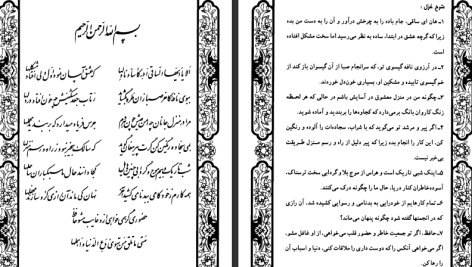 شرح غزل:
۱ـ هان ای ساقی، جام باده را به چرخش درآور و آن را به دست من بده
زیرا که گرچه عشق در ابتدا، ساده به نظر می‌رسید اما سخت مشکل افتاده
است.
۲ـ در آرزوی نافه گیسوی تو، که سرانجام صبا از آن گیسوان باز کند از
خم گیسوی تابیده و مشکین او، بسیاری خون‌دل خوردند.
۳ـ چگونه من در منزل معشوق در آسایش باشم در حالی که هر لحظه
زنگ کاروان بانگ برمی‌دارد که کجاوه‌ها را بربندید و آماده شوید.
۴ـ اگر پیر و مرشد تو می‌گوید که با شراب، سجاده‌ات را آلوده و رنگین
کن، این کار را انجام بده زیرا که پیر دلیل از راه و رسم منزل طریقت
بی‌خبر نیست.
۵ـ اینک شبی تاریک است و هراس از موج بلا و گردابی سخت ترسناک،
آسوده‌خاطران کنار دریا، حال ما را چگونه درک می‌کنند.
۶ـ تمام کارهایم از خودرایی به بدنامی و رسوایی کشیده شد، آن رازی
که در انجمنها گفته شود چگونه پنهان می‌ماند؟
۷ـ حافظ، اگر تو جمعیت خاطر و حضور قلب می‌خواهی، از او غافل مشو،
اگر می‌خواهی آنکس را که دوست داری را ملاقات کنی، دنیا و اسباب آن
را رها کن.
بسم الله الرحمن الرحیم
الا یا ایها الساقی ادر کأسا و ناولها که عشق آسان نمود اول ولی افتاد مشکلها
ببوی نافه کاخر صبا زان طره بگشاید ز تاب جعد مشکینش چه خون افتاد در دلها
مرا در منزل جانان چه امن عیش چون هر دم جرس فریاد میدارد که بربندید محملها
بمی سجاده رنگین کن گرت پیر مغان گوید که سالک بیخبر نبود ز راه و رسم منزلها
شب تاریک و بیم موج و گردابی چنین هایل کجا دانند حال ما سبکباران ساحلها
همه کارم ز خودکامی به بدنامی کشید آخر نهان کی ماند آن رازی کزو سازند محفلها
حضوری گر همی خواهی ازو غایب مشو حافظ
متی ما تلق من تهوی دع الدنیا و اهملها